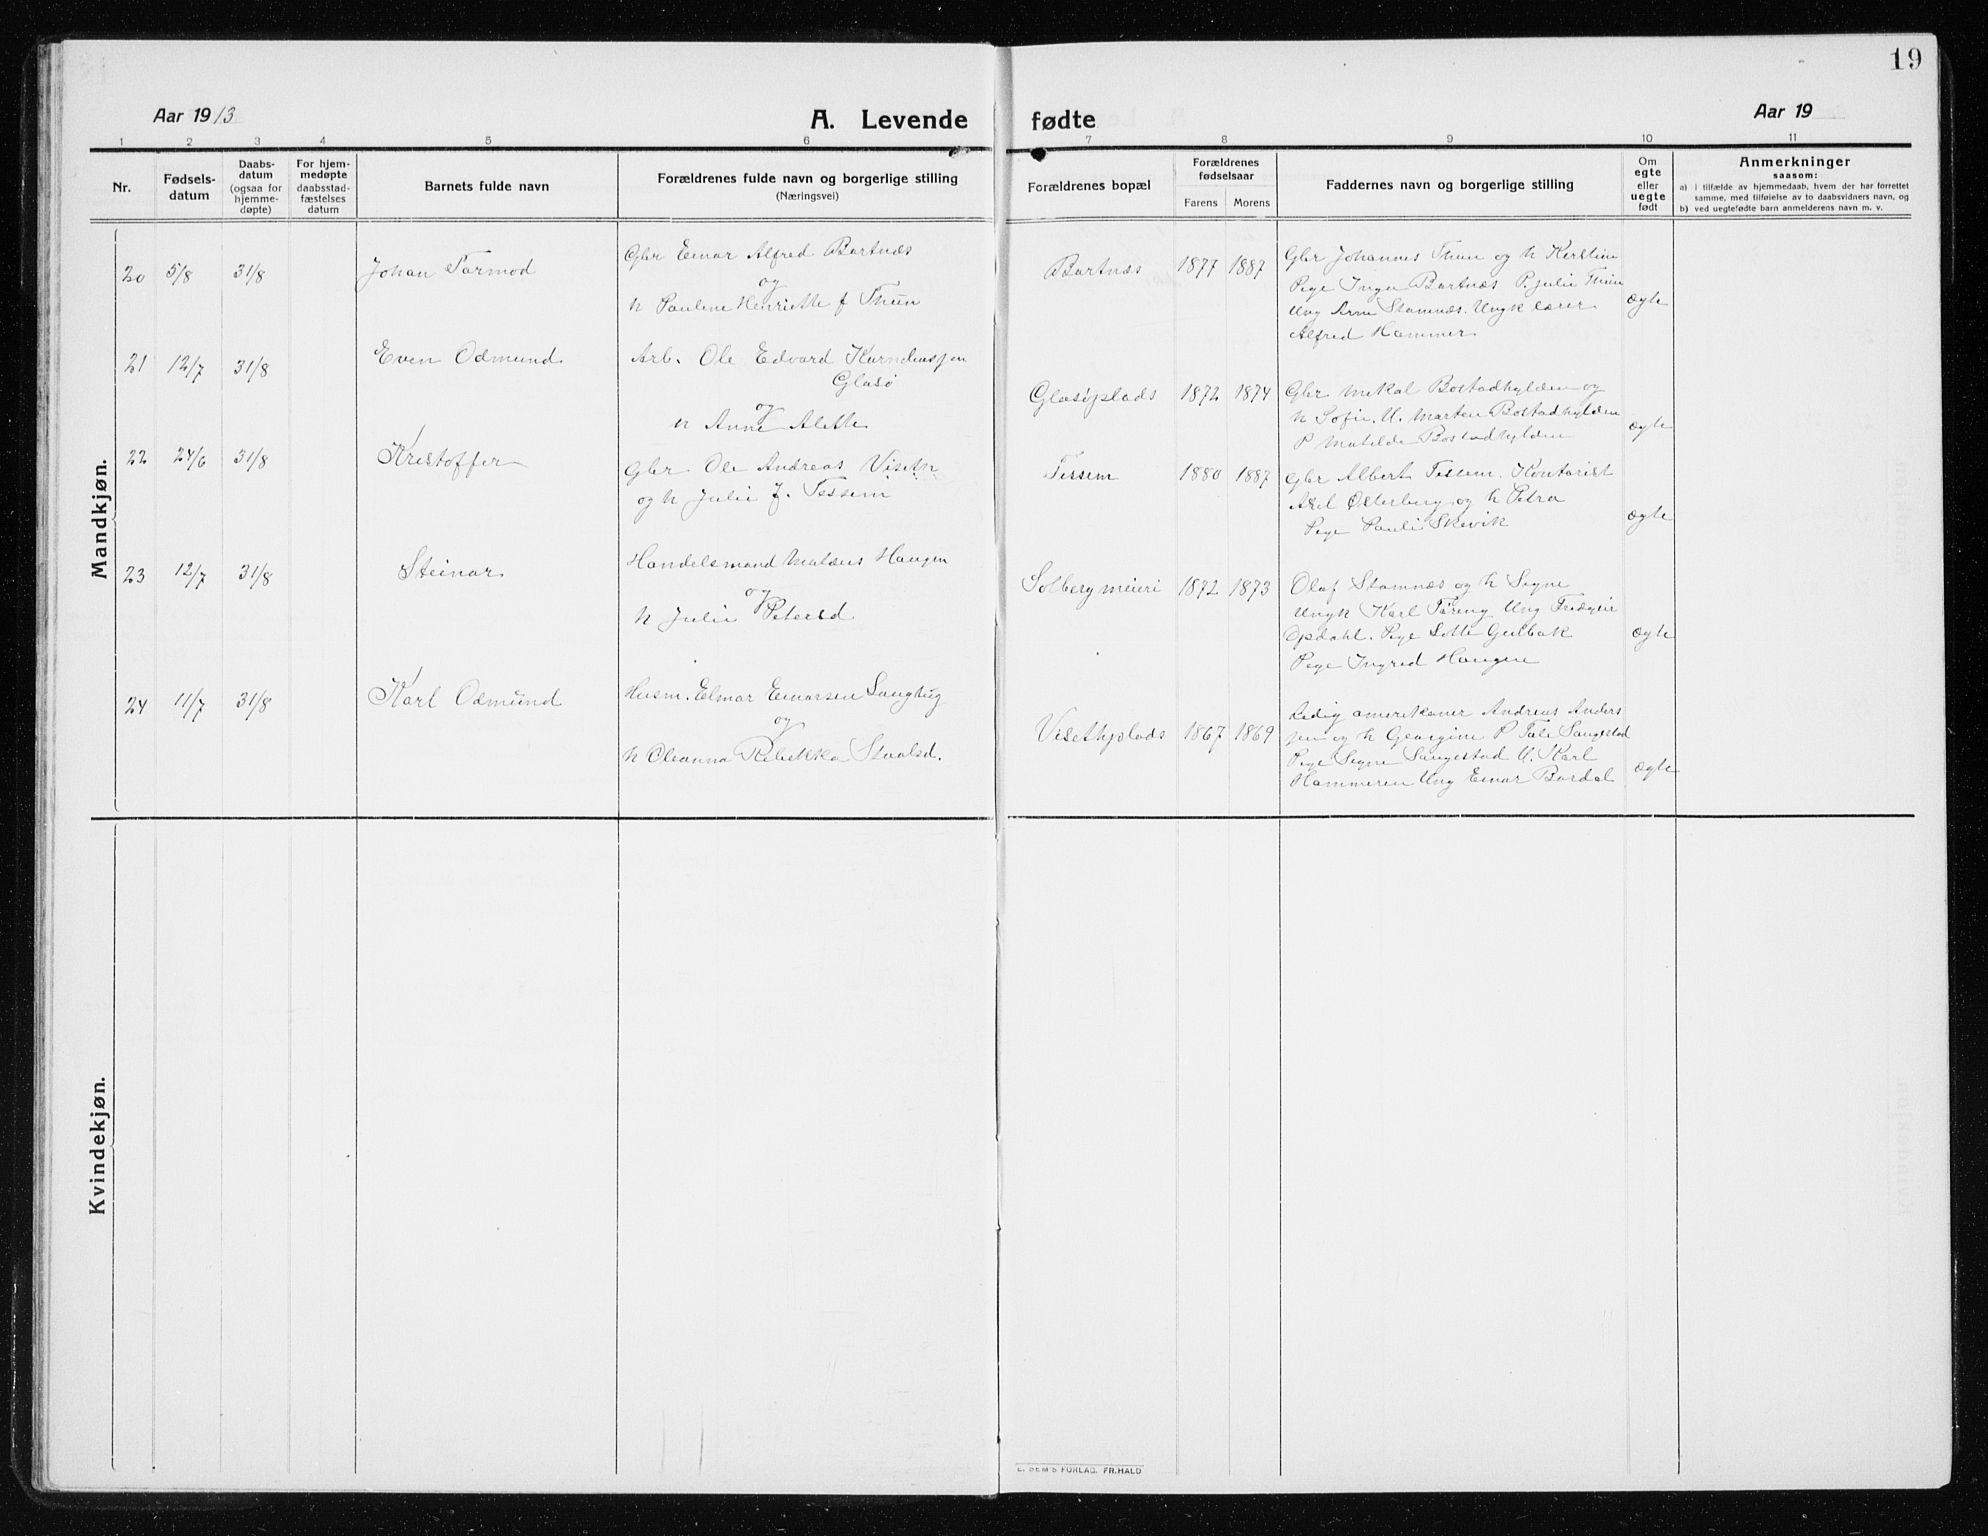 19
Aar 1913
A. Levende fødte
Aar 19
1 2 3 4 5 6 7 8 9 10 11
Nr.
Fødsels-
datum
Daabs-
datum
(ogsaa for
hjemme-
døpte)
For hjem-
medøpte
daabsstad-
fæstelses
datum
Barnets fulde navn
Forældrenes fulde navn og borgerlige stilling
(Næringsvei)
Forældrenes bopæl
Forældrenes
fødselsaar
Farens Morens
Faddernes navn og borgerlige stilling
Om
egte
eller
uegte
født
Anmerkninger
saasom:
a) i tilfælde av hjemmedaab, hvem der har forrettet
samme, med tilføielse av to daabsvidners navn, og
b) ved uegtefødte barn anmelderens navn m. v.
Mandkjøn.
20 5/8 31/8 Johan Tormod
Gbr Einar Alfred Bartnæs
og
h Pauline Henriette f Thun
Bartnæs 1877 1887
Gbr Johannes Thun og h Kerstine
Pige Inga Bartnæs P. Julie Thun
Ung Arne Stamnæs. Ungk lærer
Alfred Hammer
ægte
21 12/7 31/8 Even Odmund
Arb. Ole Edvard Korneliussen
Glasø
og
h Anne Alette
Glasøplads 1872 1874
Gbr Mekal Bostadhylden og
h Sofie. U. Morten Bostadhylden
P Matilde Bostadhylden
ægte
22 24/6 31/8 Kristoffer
Gbr Ole Andreas Viseth
og h Julie f. Tessem
Tessem 1880 1887
Gbr Albert Tessem. Kontorist
Axel Østerberg og h Petra
Pige Pauli Skevik
ægte
23 12/7 31/8 Steinar
Handelsmand Haugen
og
h Julie Petersd
Solberg meieri 1872 1873
Olaf Stamnæs og h Signe
Ungk Karl Ung
Opdahl. Pige Lotte Gulbak
Pige Ingrid Haugen
ægte
24 11/7 31/8 Karl Odmund
Husm. Elmar Einarsen
og
h Oleanna Rebekka
Visethplads 1867 1869
Ledig amerikaner Andreas Anders
sen og h Georgine P
Pige Signe U. Karl
Hammeren Ung Einar Bardal
ægte
Kvindekjøn.
E. SEM'S FORLAG. FR.HALD